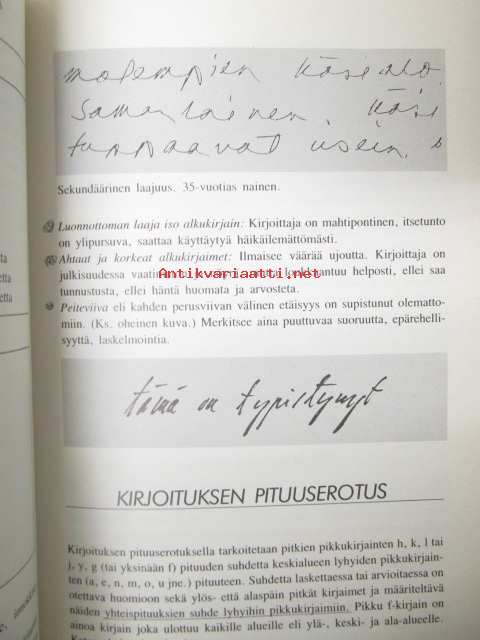 molempien käsiala
samanlainen. Käsi
tuppaavat usein.
Sekundäärinen laajuus. 35-vuotias nainen.
Luonnottoman laaja iso alkukirjain: Kirjoittaja on mahtipontinen, itsetunto
on ylipursuva, saattaa käyttäytyä häikäilemättömästi.
Ahtaat ja korkeat alkukirjaimet: Ilmaisee väärää ujoutta. Kirjoittaja on
julkisuudessa vaatimaton loukkaantuu helposti, ellei saa
Antikvariaatti.net
tunnustusta, ellei häntä huomata ja arvosteta.
Peiteviiva eli kahden perusviivan välinen etäisyys on supistunut olematto-
miin. (Ks. oheinen kuva.) Merkitsee aina puuttuvaa suoruutta, epärehelli-
syyttä, laskelmointia.
tämä on typistynyt
KIRJOITUKSEN PITUUSEROTUS
Kirjoituksen pituuserotuksella tarkoitetaan pitkien pikkukirjainten h, k, l tai
j, y, g (tai yksinään f) pituuden suhdetta keskialueen lyhyiden pikkukirjain-
ten (a, e, n, m, o, u jne.) pituuteen. Suhdetta laskettaessa tai arvioitaessa on
otettava huomioon sekä ylös- että alaspäin pitkät kirjaimet ja määriteltävä
näiden yhteispituuksien suhde lyhyihin pikkukirjaimiin. Pikku f-kirjain on
ainoa kirjain joka ulottuu kaikille alueille eli ylä-, keski- ja ala-alueelle.